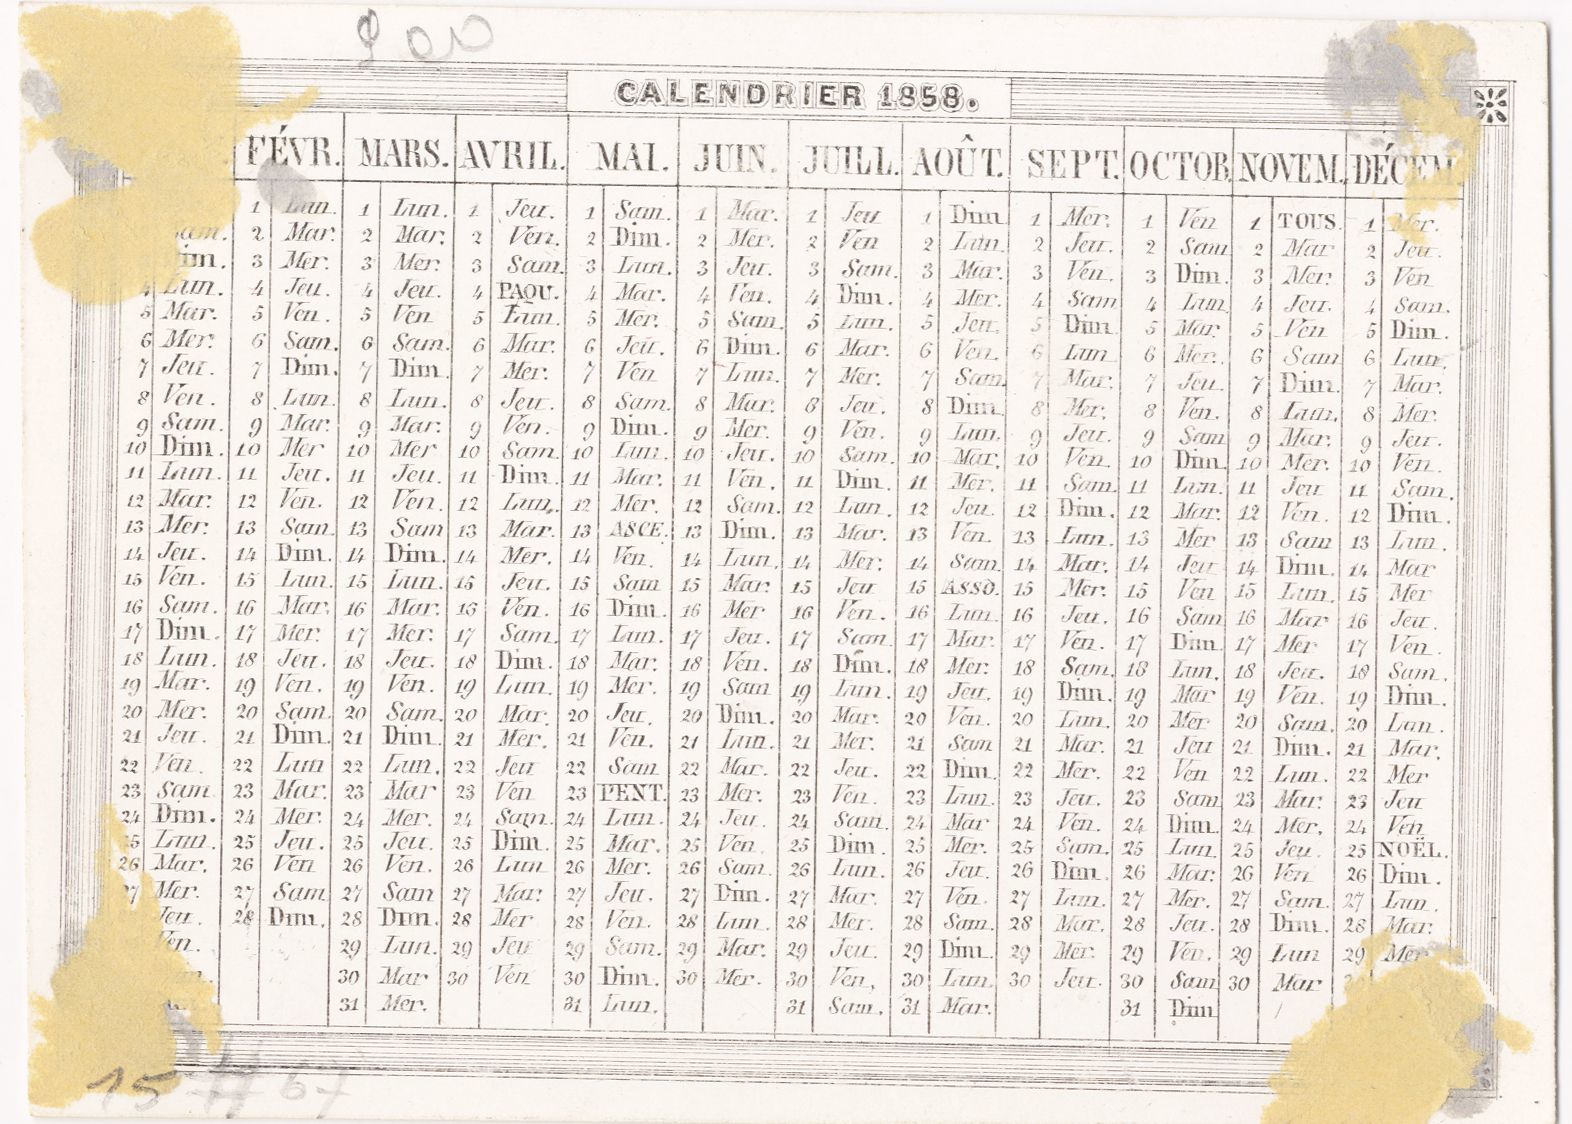 200
CALENDRIER 1858.
FÉVR. MARS. AVRIL. MAI. JUIN. JUILL. AOÛT. SEPT. OCTOB. NOVEM. DÉCEM.
1 Lun. 1 Lun. 1 Jeu. 1 Sam. 1 Mar. 1 Jeu 1 Dim 1 Mer. 1 Ven 1 TOUS. 1 Mer.
Sam. 2 Mar. 2 Mar. 2 Ven. 2 Dim. 2 Mer. 2 Ven 2 Lun. 2 Jeu. 2 Sam 2 Mar 2 Jeu.
Dim. 3 Mer. 3 Mer. 3 Sam. 3 Lun. 3 Jeu. 3 Sam. 3 Mar. 3 Ven. 3 Dim. 3 Mer. 3 Ven
4 Lun. 4 Jeu. 4 Jeu. 4 PAQU. 4 Mar. 4 Ven. 4 Dim. 4 Mer. 4 Sam 4 Lun 4 Jeu. 4 Sam.
5 Mar. 5 Ven. 5 Ven 5 Lun. 5 Mer. 5 Sam. 5 Lun. 5 Jeu. 5 Dim. 5 Mar. 5 Ven 5 Dim.
6 Mer. 6 Sam. 6 Sam. 6 Mar. 6 Jeu. 6 Dim. 6 Mar. 6 Ven. 6 Lun 6 Mer. 6 Sam 6 Lun.
7 Jeu. 7 Dim. 7 Dim. 7 Mer. 7 Ven 7 Lun. 7 Mer. 7 Sam. 7 Mar. 7 Jeu. 7 Dim. 7 Mar.
8 Ven. 8 Lun. 8 Lun. 8 Jeu. 8 Sam. 8 Mar. 8 Jeu. 8 Dim. 8 Mer. 8 Ven. 8 Lun. 8 Mer.
9 Sam. 9 Mar. 9 Mar. 9 Ven. 9 Dim. 9 Mer. 9 Ven. 9 Lun. 9 Jeu. 9 Sam 9 Mar. 9 Jeu.
10 Dim. 10 Mer 10 Mer 10 Sam. 10 Lun. 10 Jeu. 10 Sam. 10 Mar. 10 Ven. 10 Dim. 10 Mer. 10 Ven.
11 Lun. 11 Jeu. 11 Jeu. 11 Dim. 11 Mar. 11 Ven. 11 Dim. 11 Mer. 11 Sam. 11 Lun. 11 Jeu 11 Sam.
12 Mar. 12 Ven. 12 Ven. 12 Lun. 12 Mer. 12 Sam. 12 Lun. 12 Jeu. 12 Dim. 12 Mar. 12 Ven. 12 Dim.
13 Mer. 13 Sam. 13 Sam 13 Mar. 13 ASCE. 13 Dim. 13 Mar. 13 Ven. 13 Lun. 13 Mer 13 Sam 13 Lun.
14 Jeu. 14 Dim. 14 Dim. 14 Mer. 14 Ven. 14 Lun. 14 Mer. 14 Sam. 14 Mar. 14 Jeu 14 Dim. 14 Mar
15 Ven. 15 Lun. 15 Lun. 15 Jeu. 15 Sam 15 Mar. 15 Jeu 15 ASSO. 15 Mer. 15 Ven 15 Lun. 15 Mer
16 Sam. 16 Mar. 16 Mar. 16 Ven. 16 Dim. 16 Mer 16 Ven. 16 Lun. 16 Jeu. 16 Sam 16 Mar 16 Jeu.
17 Dim. 17 Mer. 17 Mer. 17 Sam. 17 Lun. 17 Jeu. 17 Sam 17 Mar. 17 Ven. 17 Dim 17 Mer 17 Ven.
18 Lun. 18 Jeu. 18 Jeu. 18 Dim. 18 Mar. 18 Ven. 18 Dim. 18 Mer. 18 Sam. 18 Lun. 18 Jeu. 18 Sam.
19 Mar. 19 Ven. 19 Ven. 19 Lun. 19 Mer. 19 Sam 19 Lun. 19 Jeu. 19 Dim. 19 Mar 19 Ven. 19 Dim.
20 Mer. 20 Sam. 20 Sam. 20 Mar. 20 Jeu. 20 Dim. 20 Mar. 20 Ven. 20 Lun. 20 Mer 20 Sam. 20 Lun.
21 Jeu. 21 Dim. 21 Dim. 21 Mer. 21 Ven. 21 Lun. 21 Mer. 21 Sam 21 Mar. 21 Jeu 21 Dim. 21 Mar.
22 Ven. 22 Lun 22 Lun. 22 Jeu 22 Sam 22 Mar. 22 Jeu. 22 Dim. 22 Mer. 22 Ven 22 Lun. 22 Mer
23 Sam 23 Mar. 23 Mar 23 Ven 23 PENT. 23 Mer. 23 Ven. 23 Lun. 23 Jeu. 23 Sam 23 Mar. 23 Jeu
24 Dim. 24 Mer. 24 Mer. 24 Sam. 24 Lun. 24 Jeu. 24 Sam. 24 Mar 24 Ven. 24 Dim. 24 Mer. 24 Ven
25 Lun. 25 Jeu. 25 Jeu. 25 Dim. 25 Mar. 25 Ven. 25 Dim. 25 Mer. 25 Sam. 25 Lun. 25 Jeu. 25 NOËL.
26 Mar. 26 Ven 26 Ven. 26 Lun 26 Mer. 26 Sam. 26 Lun. 26 Jeu. 26 Dim. 26 Mar. 26 Ven 26 Dim.
27 Mer. 27 Sam 27 Sam 27 Mar. 27 Jeu. 27 Dim. 27 Mar. 27 Ven. 27 Lun. 27 Mer. 27 Sam. 27 Lun.
Jeu. 28 Dim. 28 Dim. 28 Mer 28 Ven. 28 Lun. 28 Mer. 28 Sam. 28 Mar. 28 Jeu. 28 Dim. 28 Mar.
Ven. 29 Lun. 29 Jeu 29 Sam. 29 Mar. 29 Jeu. 29 Dim. 29 Mer. 29 Ven. 29 Lun 29 Mer.
30 Mar 30 Ven 30 Dim. 30 Mer. 30 Ven. 30 Lun. 30 Jeu. 30 Sam 30 Mar
31 Mer. 31 Lun. 31 Sam. 31 Mar. 31 Dim
15 # 67